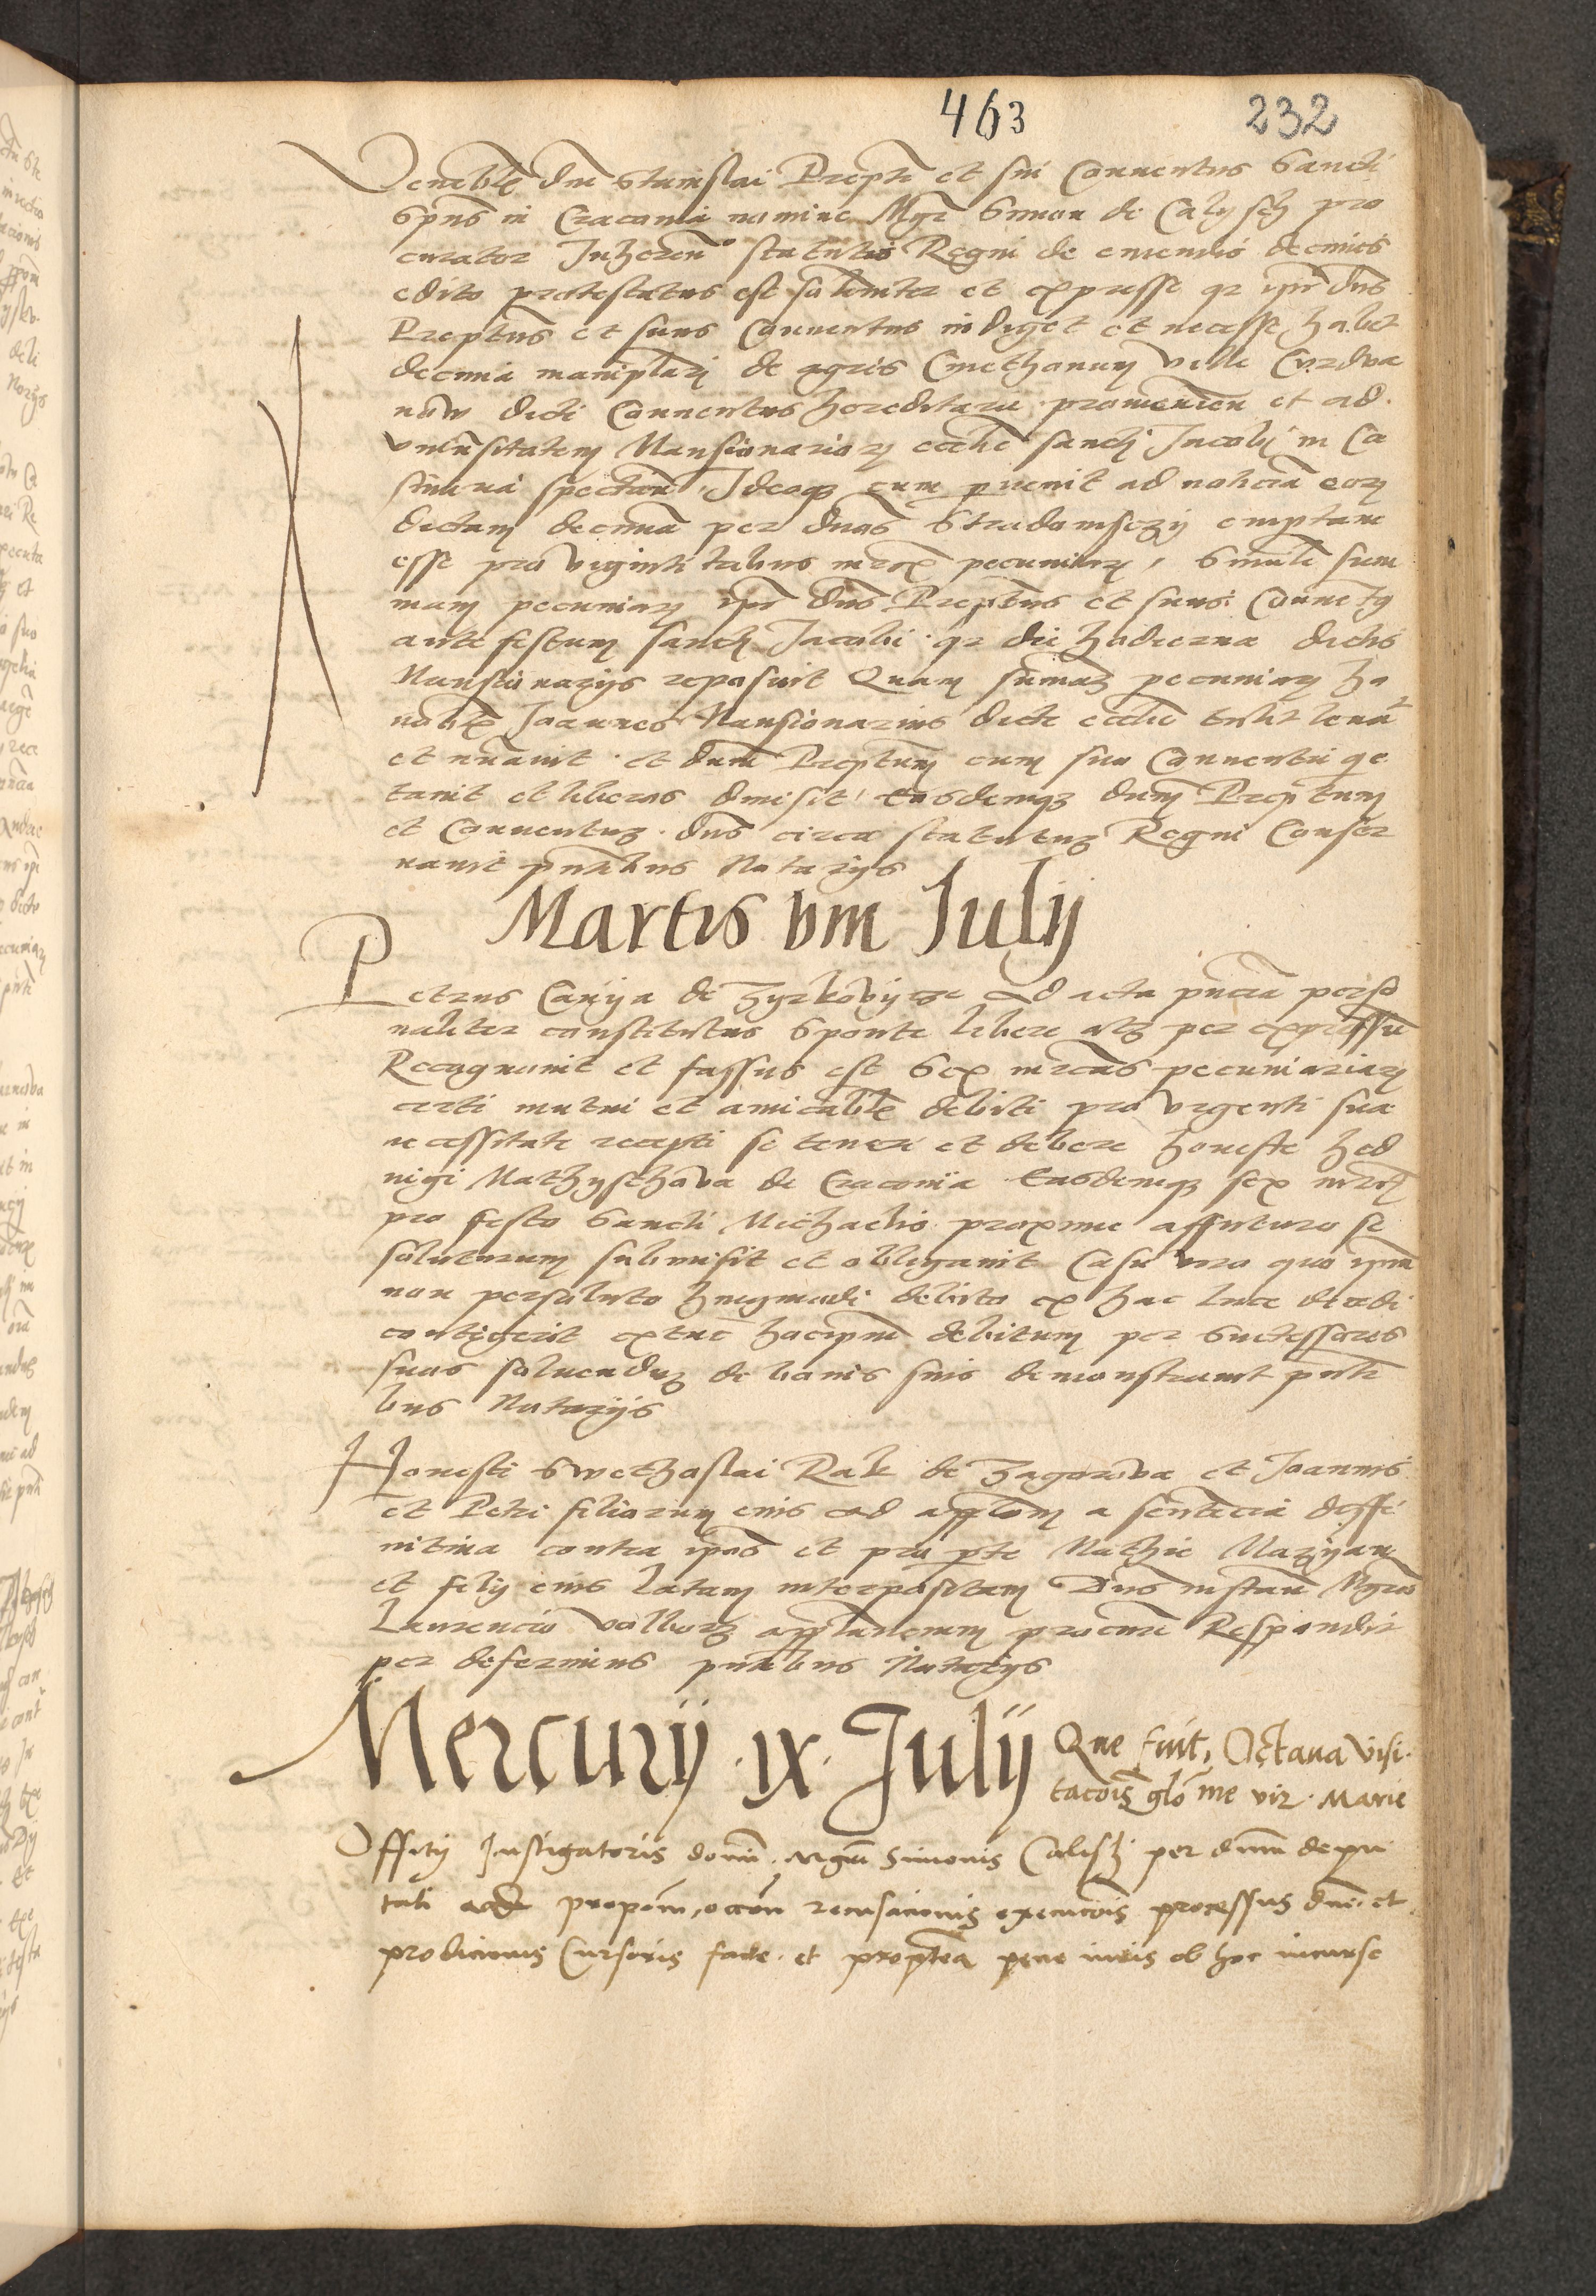 463 232
Veneblis dni Stanislai Prepti et sui Conuentus Sancti
Spūs in Cracouia nomine Mgr Simon de Calysch pro
curator Inherēn statutis Regni de emendis decimis
edito protestatus est solenniter et expresse qr ipse dns
Preptus et suus Conuentus indiget et necesse habet
decima maniplari de agris Cmethonum ville Curdwa
now dicti Conuentus hereditarie prouenien et ad
vniūsitatem Mansionariorum ecclie sancti Jacobi in Ca
simiria spectan Ideoqz cum puenit ad noticia eorum
dictam decima per dnos Stradomsczy emptam
esse pro viginti tribus mrcis pecuniarum, Simile sum
mam pecuniarum ipse dns Preptus et suus Conuentus
ante festum sancti Jacobi qr die hodierna dictis
Mansionarijs reposuit Quam summaz pecuniarum ho
norabilis Joannes Mansionarius dicte ecclie
et nūauit et dnum Preptum cum suo Conuentu qe
tauit et liberos dmisit Eosdemqz dnum Preptum
et Conuentuz dns circa statutuz Regni Conser
uauit pntibus Notarijs
Martis viii Julij
Petrus Canya de Zyrkowycze ad acta pncia perso
naliter constitutus Sponte libere atqz per expressu
Recognouit et fassus est Sex mrcas pecuniariarum
certi mutui et amicabilis debiti pro vrgenti sua
necessitate recepti se teneri et debere honeste Hed
uigi Mathyschowa de Cracouia Easdemqz sex mrcas
pro festo Sancti Michaelis proxime affuturo se
soluturum submisit et obligauit Casu vero quo ipm
non persoluto huiusmodi debito ex hac luce decedi
contigerit extunc hocipm debitum per Successores
suos soluenduz de bonis suis demonstrauit pnti
bus Notarijs
Honesti Swethoslai Rak de Zagorowa et Joannis
et Petri filiorum eius ad applonem a sentencia deffi
nitiua contra ipos et pro pte Mathie Mazyan
et filij eius latam interpositam Dns instan Mgro
Laurencio applancium procure Respondit
per deferimus pntibus Notarijs
Mercurij ix Julij Que fuit, Octaua visi
tacois glo me vir Marie
Officij Instigatoris domi mgri Simonis Calisch per dnum depu
tati ad propom, occon recusacionis execucois processus dni et
prodicionis Cursoris facte et propterea pene iuris ob hoc incurse